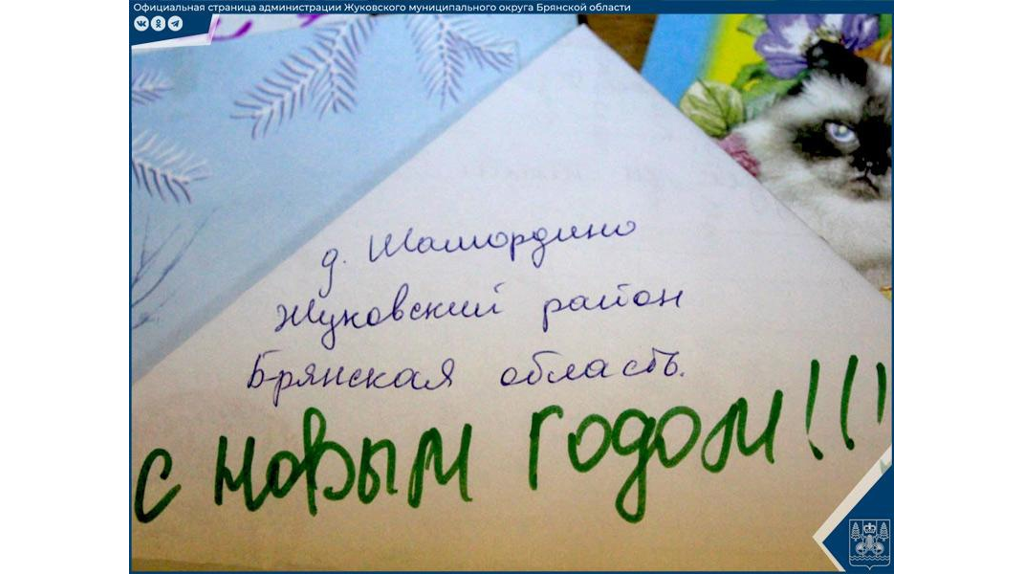 Официальная страница администрации Жуковского муниципального округа Брянской области
д. Шамордино
Жуковский район
Брянская область.
с новым годом!!!